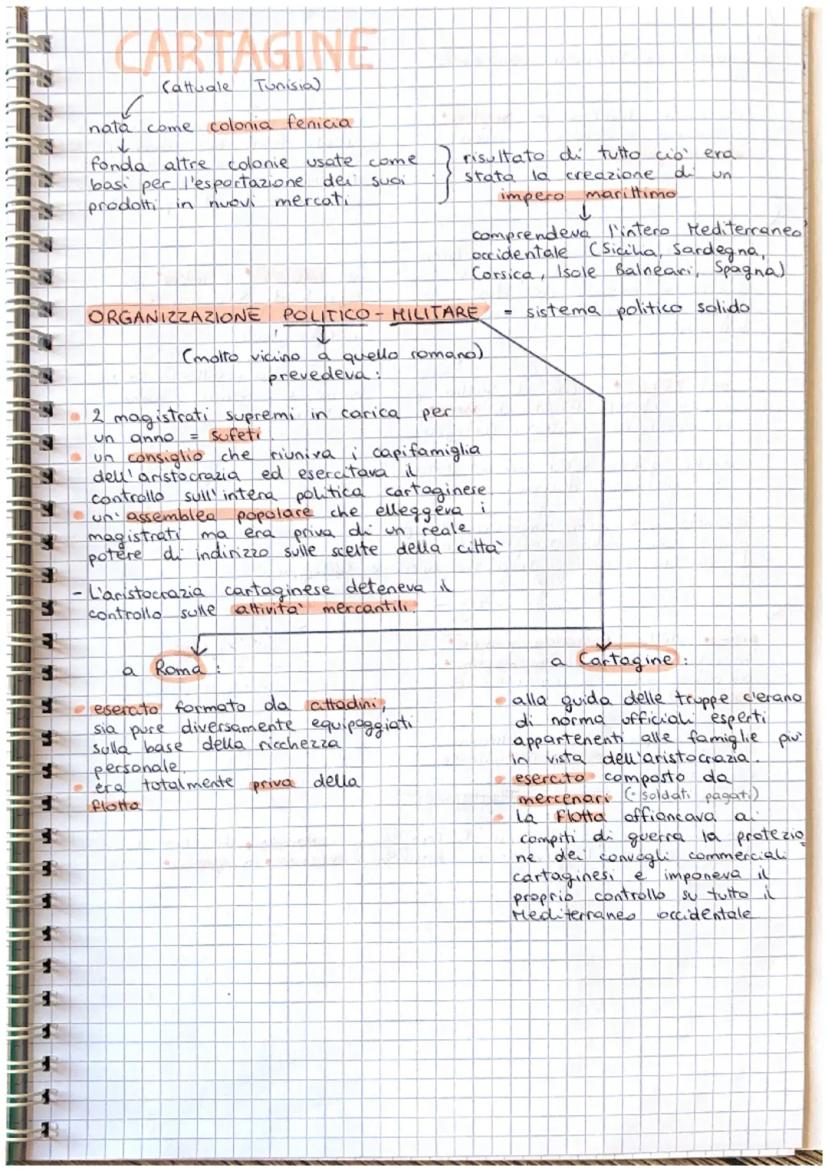 CARTAGINE
(attuale Tunisia)
nata come colonia fenicia
fonda altre colonie usate come
basi per l'esportazione dei suoi
prodotti in nuovi mercati
risultato di tutto ciò era
stata la creazione di un
impero marittimo
comprendeva l'intero Mediterraneo
occidentale (Sicilia, Sardegna,
Corsica, Isole Balneari, Spagna)
ORGANIZZAZIONE POLITICO - MILITARE = sistema politico solido
(molto vicino a quello romano)
prevedeva:
• 2 magistrati supremi in carica per
un anno = sufeti
• un consiglio che riuniva i capifamiglia
dell'aristocrazia ed esercitava il
controllo sull'intera politica cartaginese
• un'assemblea popolare che elleggeva i
magistrati ma era priva di un reale
potere di indirizzo sulle scelte della città
- L'aristocrazia cartaginese deteneva il
controllo sulle attività mercantili.
a Roma:
• esercito formato da cittadini,
sia pure diversamente equipaggiati
sulla base della ricchezza
personale.
• era totalmente priva della
flotta
a Cartagine:
• alla guida delle truppe c'erano
di norma ufficiali esperti
appartenenti alle famiglie più
in vista dell'aristocrazia.
• esercito composto da
mercenari (= soldati pagati)
• La flotta affiancava ai
compiti di guerra la protezio
ne dei convogli commerciali
cartaginesi e imponeva il
proprio controllo su tutto il
Mediterraneo occidentale